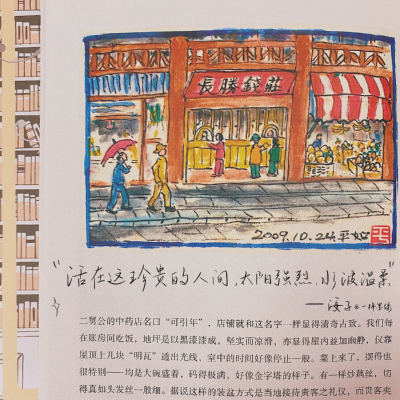 長勝錢莊
2009.10.24.平如
"活在这珍贵的人间,太阳强烈,水波温柔"
二舅公的中药店名曰“可引年”,店铺就和这名字一样显得清奇古致。我们每
在账房间吃饭,地坪是以黑漆漆成,坚实而凉滑,亦显得屋内益加幽静,仅靠
屋顶上几块“明瓦”透出光线,室中的时间好像停止一般。菜上来了,摆得也
很特别——均是大碗盛着,码得极满,好像金字塔的样子。有一样炒蹄丝,切
得真如头发丝一般细。据说这样的装盆方式是当地接待贵客之礼仪,而贵客夹